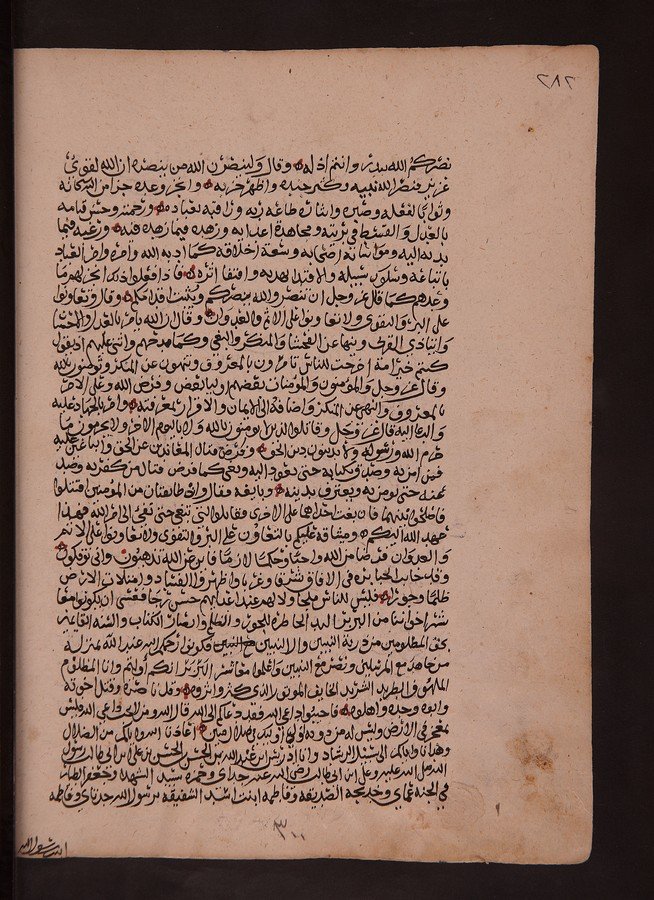 ٢٨٢
نصركم الله ببدر وانتم اذلة وقال ولينصرن الله من ينصره ان الله لقوي
عزيز فنصر الله نبيه وكثر جنده واظهر حزبه وانجز وعده جزا من الله سبحانه
وثوابا لفضله وصبره وايثاره طاعة ربه ورافته بعباده ورحمته وحسن قيامه
بالعدل والقسط في بريته ومجاهدة اعدايه وزهده فيما زهده فيه ورغبته فيما
ندبه اليه ومواساته اصحابه وسعة اخلاقه كما ادبه الله وامره وامر العباد
باتباعه وسلوك سبيله والاقتدا بهديه واقتفا اثره فاذا فعلوا ذلك انجز لهم ما
وعدهم كما قال عز وجل ان تنصروا الله ينصركم ويثبت اقدامكم وقال وتعاونوا
على البر والتقوى ولا تعاونوا على الاثم والعدوان وقال ان الله يامر بالعدل والاحسان
وايتاء ذي القربى وينها عن الفحشا والمنكر والبغي وكما مدحهم واثنى عليهم اذ يقول
كنتم خير امة اخرجت للناس تامرون بالمعروف وتنهون عن المنكر وتومنون بالله
وقال عز وجل والمؤمنون والمؤمنات بعضهم اوليا بعض وفرض الله عز وجل الامر
بالمعروف والنهي عن المنكر واضافه الى الايمان والاقرار بمعرفته وامر بالجهاد عليه
والدعا اليه قال عز وجل وقاتلوا الذين لا يومنون بالله ولا باليوم الاخر ولا يحرمون ما
حرم الله ورسوله ولا يدينون دين الحق وفرض قتال المعاندين عن الحق والباغين عليه
ممن امن به وصدق بكتابه حتى يعود اليه ويفي كما فرض قتال من كفر به وصد
عنه حتى يومن به ويعترف بدينه وشرايعه فقال وان طائفتان من المؤمنين اقتتلوا
فاصلحوا بينهما فان بغت احداهما على الاخرى فقاتلوا التي تبغي حتى تفي الى امر الله فهذا
عهد الله اليكم وميثاقه عليكم بالتعاون على البر والتقوى ولا تعاونوا على الاثم
والعدوان فرضا من الله واجبا وحكما لازما فاين عن الله تذهبون وانى توفكون
وقد جابت الجبابرة في الافاق شرقا وغربا واظهروا الفساد وامتلات الارض
ظلما وجورا فليس للناس ملجا ولا لهم عند اعدايهم حسن رجا فعسى ان تكونوا معاشر
اخواننا من البربر اليد الحاصدة للجور والظلم وانصار الكتاب والسنه القايمين
بحق المظلومين من ذرية النبيين فكونوا رحمكم الله عند الله بمنزلة
من جاهد مع المرسلين ونصر مع النبيين واعلموا معاشر البربر انكم اوليتم وانا المظلوم
الملهوف الطريد الشريد الخايف الموتور الذي كثر واتروه وقل ناصره وقتل اخوته
وابوه وجده واهلوه فاجيبوا داعي الله فقد دعاكم الى الله قال الله ومن لا يجب داعي الله فليس
بمعجز في الارض وليس له من دونه اوليا اوليك في ضلال مبين اعاذنا الله واياكم من الضلال
وهدانا واياكم الى سبيل الرشاد وانا ادريس بن عبد الله بن الحسن بن الحسن بن علي بن ابي طالب رسول
الله صلى الله عليه وعلي ابن ابي طالب رضي الله عنه جداي وحمزة سيد الشهدا وجعفر الطيار
في الجنة عماي وخديجة الصديقة وفاطمة ابنت اسد الشفيقة برسول الله جدتاي وفاطمه
٣٠٠